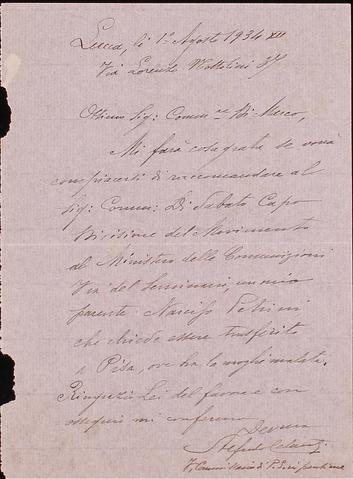 Lucca, li 1° Agosto 1934 XII
Via Lorenzo Nottolini 37
Ottimo Sig: Comm.re Di Marco,
Mi farà cosa grata se vorrà
compiacersi di raccomandare al
Sig: Comm: Di Sabato Capo
Divisione del Movimento
al Ministero delle Comunicazioni
Via del Seminario, un mio
parente Narciso Petrini
che chiede essere trasferito
a Pisa, ove ha la moglie malata.
Ringrazio Lei del favore e con
ossequi mi confermo
Devmo
Alfredo
V. Commissario di P.